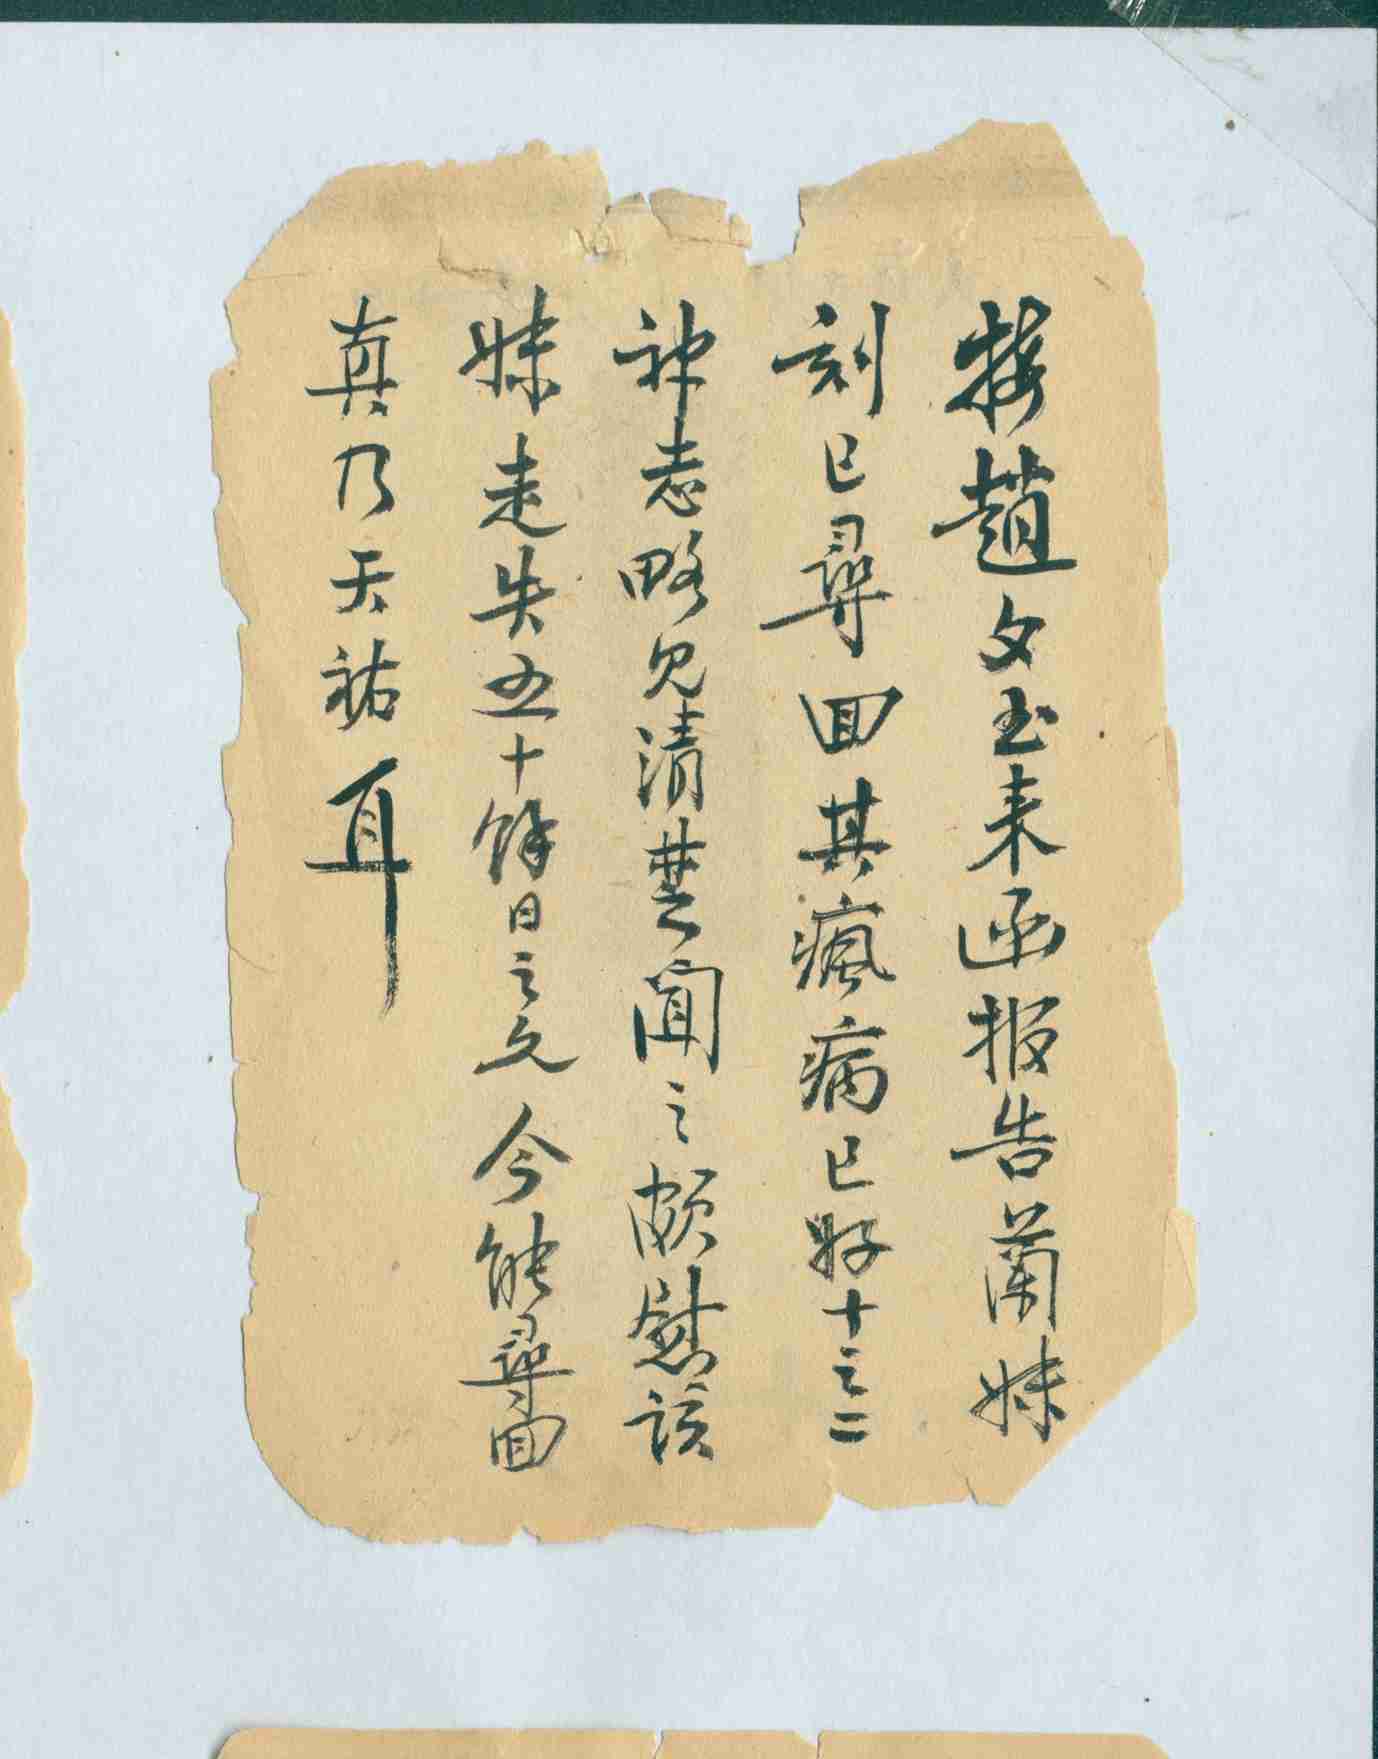 接趙文玉来函报告蘭妹
刻已尋回其瘋病已好十之二
神志略見清楚聞之頗慰該
妹走失五十餘日之久今能尋回
真乃天祐耳